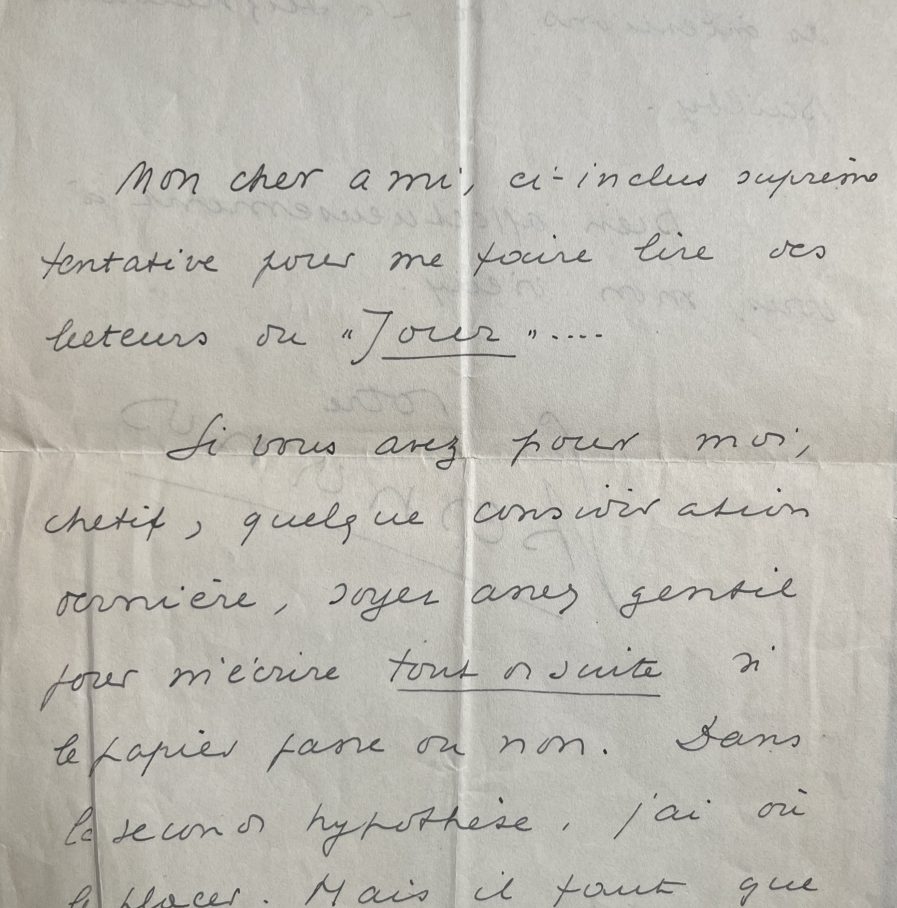 Mon cher ami, ci-inclus suprême
tentative pour me faire lire des
lecteurs du "Jour"....
Si vous avez pour moi,
chetif, quelque considération
dernière, soyez assez gentil
pour m'écrire tout de suite si
le papier passe ou non. Dans
la seconde hypothèse, j'ai où
le placer. Mais il faut que